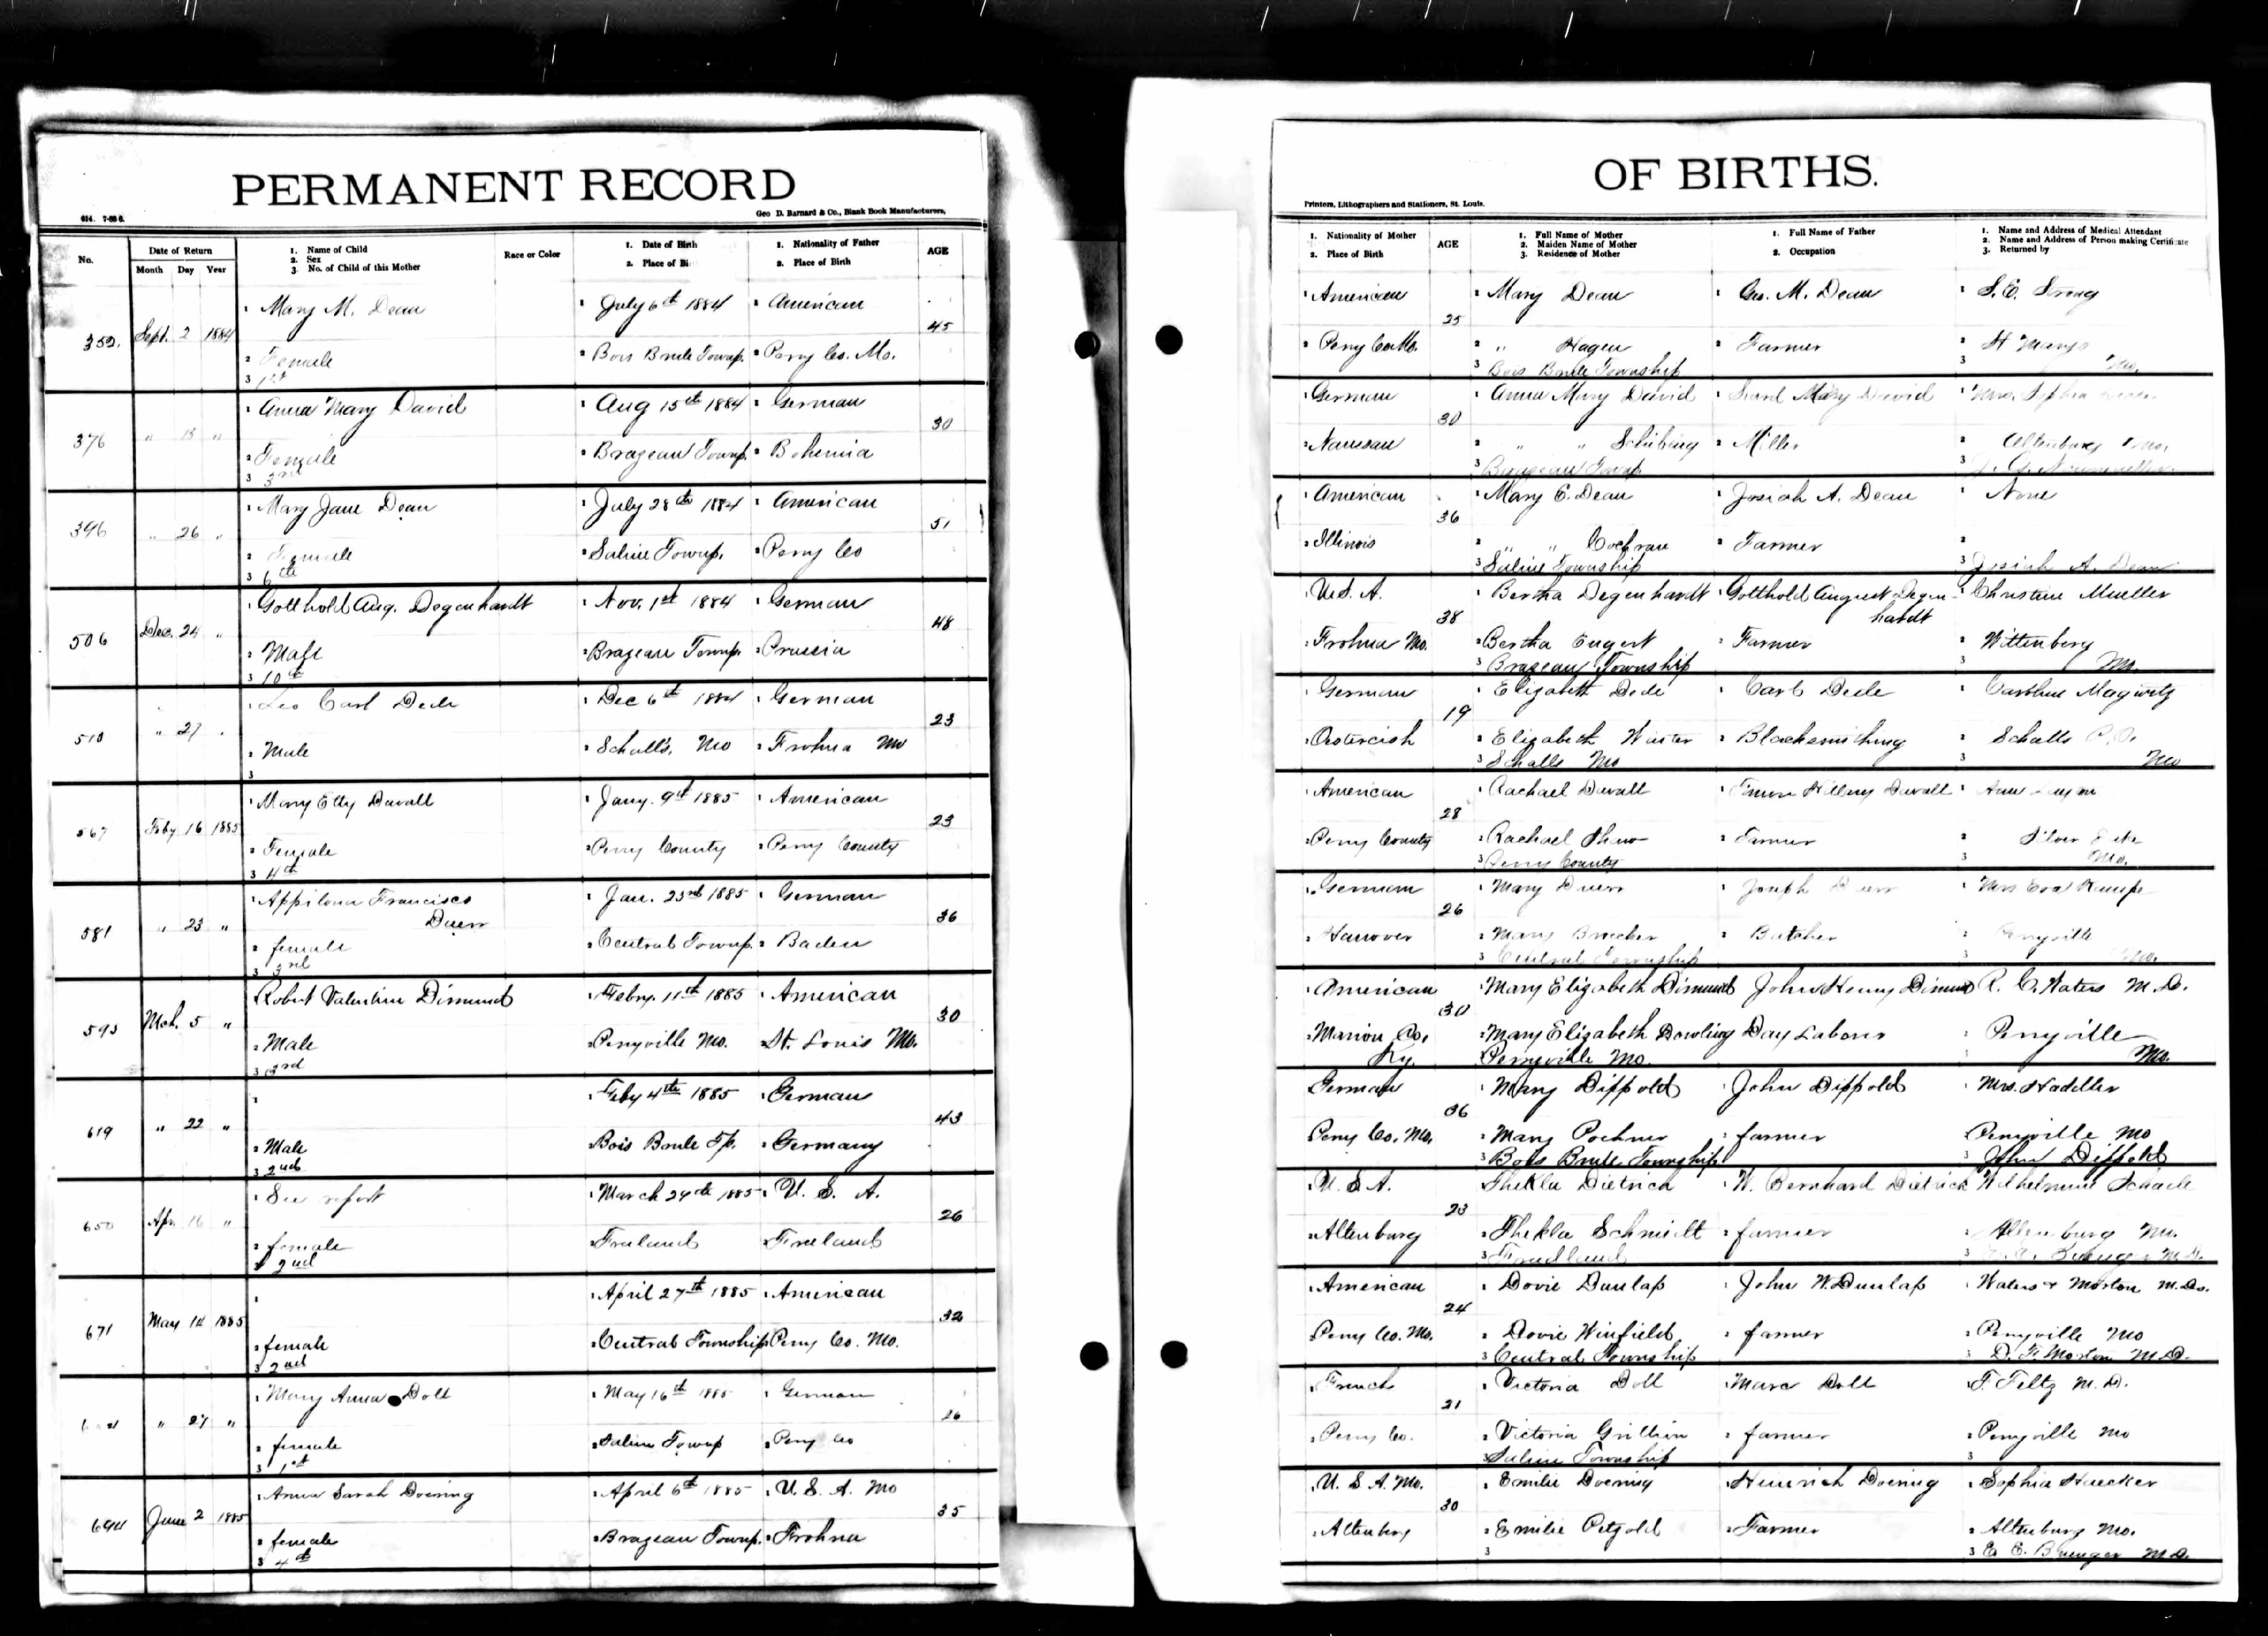 PERMANENT RECORD
614. 7-88 6.
Geo D. Barnard & Co., Blank Book Manufacturers,
No.
Date of Return
Month Day Year
1. Name of Child
2. Sex
3. No. of Child of this Mother
Race or Color
1. Date of Birth
2. Place of Bi
1. Nationality of Father
2. Place of Birth
AGE
359. Sept. 2 1884
1 Mary M. Dean 1 July 6th 1884 1 American 45
2 Female 2 Bois Brule Townp. 2 Perry Co. Mo.
3 1st
376 " 15 "
1 Anna Mary David 1 Aug 15th 1884 1 German 30
2 Female 2 Brazeau Townp. 2 Bohemia
3 3rd
396 " 26 "
1 Mary Jane Dean 1 July 28th 1884 1 American 51
2 Female 2 Saline Townp. 2 Perry Co
3 6th
506 Dec. 24 "
1 Gotthold Aug. Degenhardt 1 Nov. 1st 1884 1 German 48
2 Male 2 Brazeau Townp. 2 Prussia
3 10th
510 " 27 "
1 Leo Carl Dede 1 Dec 6th 1884 1 German 23
2 Male 2 Schalls, Mo 2 Frohna Mo
3
567 Feby 16 1885
1 Mary Etty Duvall 1 Jany. 9th 1885 1 American 23
2 Female 2 Perry County 2 Perry County
3 4th
581 " 23 "
1 Appilona Francisco 1 Jan. 23rd 1885 1 German 36
Duerr
2 female 2 Central Townp. 2 Baden
3 3rd
593 Mch. 5 "
Robert Valentine Dimund 1 Febry. 11th 1885 1 American 30
2 Male 2 Perryville Mo. 2 St. Louis Mo.
3 3rd
619 " 22 "
1 1 Feby 4th 1885 1 German 43
2 Male 2 Bois Brule Tp. 2 Germany
3 2nd
650 Apr 16 "
1 See report 1 March 24th 1885 1 U. S. A. 26
2 female 2 Freeland 2 Freeland
3 2nd
671 May 14 1885
1 1 April 27th 1885 1 American 32
2 female 2 Central Township 2 Perry Co. Mo.
3 2nd
" 27 "
1 Mary Anna Doll 1 May 16th 1885 1 German 26
2 female 2 Saline Townp 2 Perry Co
3 1st
694 June 2 1885
1 Anna Sarah Doering 1 April 6th 1885 1 U. S. A. Mo 35
2 female 2 Brazeau Townp. 2 Frohna
3 4th
OF BIRTHS.
Printers, Lithographers and Stationers, St. Louis.
1. Nationality of Mother
2. Place of Birth
AGE
1. Full Name of Mother
2. Maiden Name of Mother
3. Residence of Mother
1. Full Name of Father
2. Occupation
1. Name and Address of Medical Attendant
2. Name and Address of Person making Certificate
3. Returned by
1 American 25 1 Mary Dean 1 Geo. M. Dean 1 S. E.
2 Perry Co Mo. 2 " Hagen 2 Farmer 2 St Marys
3 Bois Brule Township 3 Mo.
1 German 30 1 Anna Mary David 1 Mary David 1 Mrs. Sophia
2 Nanssau 2 " " Schibing 2 Miller 2 Altenburg Mo.
3 Brazeau Townp 3
1 American 36 1 Mary E. Dean 1 Josiah A. Dean 1 None
2 Illinois 2 " " Cochran 2 Farmer 2
3 Saline Township 3 Josiah A. Dean
1 U.S. A. 38 1 Bertha Degenhardt 1 Gotthold August Degen- 1 Christine Mueller
hardt
2 Frohna Mo. 2 Bertha Eugert 2 Farmer 2 Wittenberg
3 Brazeau Township 3 Mo.
1 German 19 1 Elizabeth Dede 1 Carl Dede 1 Caroline Magwitz
2 Oestereich 2 Elizabeth Winter 2 Blacksmithing 2 Schalls P. O.
3 Schalls Mo 3 Mo
1 American 28 1 Rachael Duvall 1 Hillery Duvall 1
2 Perry County 2 Rachael Shaw 2 Farmer 2 Silver Lake
3 Perry County 3 Mo.
1 German 26 1 Mary Duerr 1 Joseph Duerr 1 Mrs Eva Kempe
2 Hanover 2 Mary Brecker 2 Butcher 2 Perryville
3 Central Township 3 Mo.
American 30 Mary Elizabeth Dimund John Henry Dimund R. C. Waters M. D.
2 Marion Co, 2 Mary Elizabeth Dowling Day Laborer 2 Perryville
Ky. Perryville Mo. 3 Mo.
German 36 1 Mary Dippold 1 John Dippold 1 Mrs. Hadeller
Perry Co. Mo. 2 Mary Pochner 2 farmer Perryville Mo
3 Bois Brule Township 3 John Dippold
1 U. S A. 23 Thekla Dietrich 1 W. Bernhard Dietrich Wilhelmine Schade
2 Altenburg 2 Thekla Schmidt 2 farmer 2 Altenburg Mo.
3 Friedland 3 Bruegger M. D.
1 American 24 1 Dovie Dunlap 1 John W. Dunlap 1 Waters & Morton M.Ds.
2 Perry Co. Mo. 2 Dovie Winfield 2 farmer 2 Perryville Mo
3 Central Township 3 D. F. Morton M.D.
1 French 21 1 Victoria Doll 1 Marc Doll 1 F. Feltz M. D.
2 Perry Co. 2 Victoria Grillion 2 farmer 2 Perryville Mo
3 Saline Township 3
1 U. S A. Mo. 30 1 Emilie Doering 1 Heinrich Doering 1 Sophia Huecker
2 Altenburg 2 Emilie Petzold 2 Farmer 2 Altenburg Mo.
3 3 E. E. Bruegger M.D.